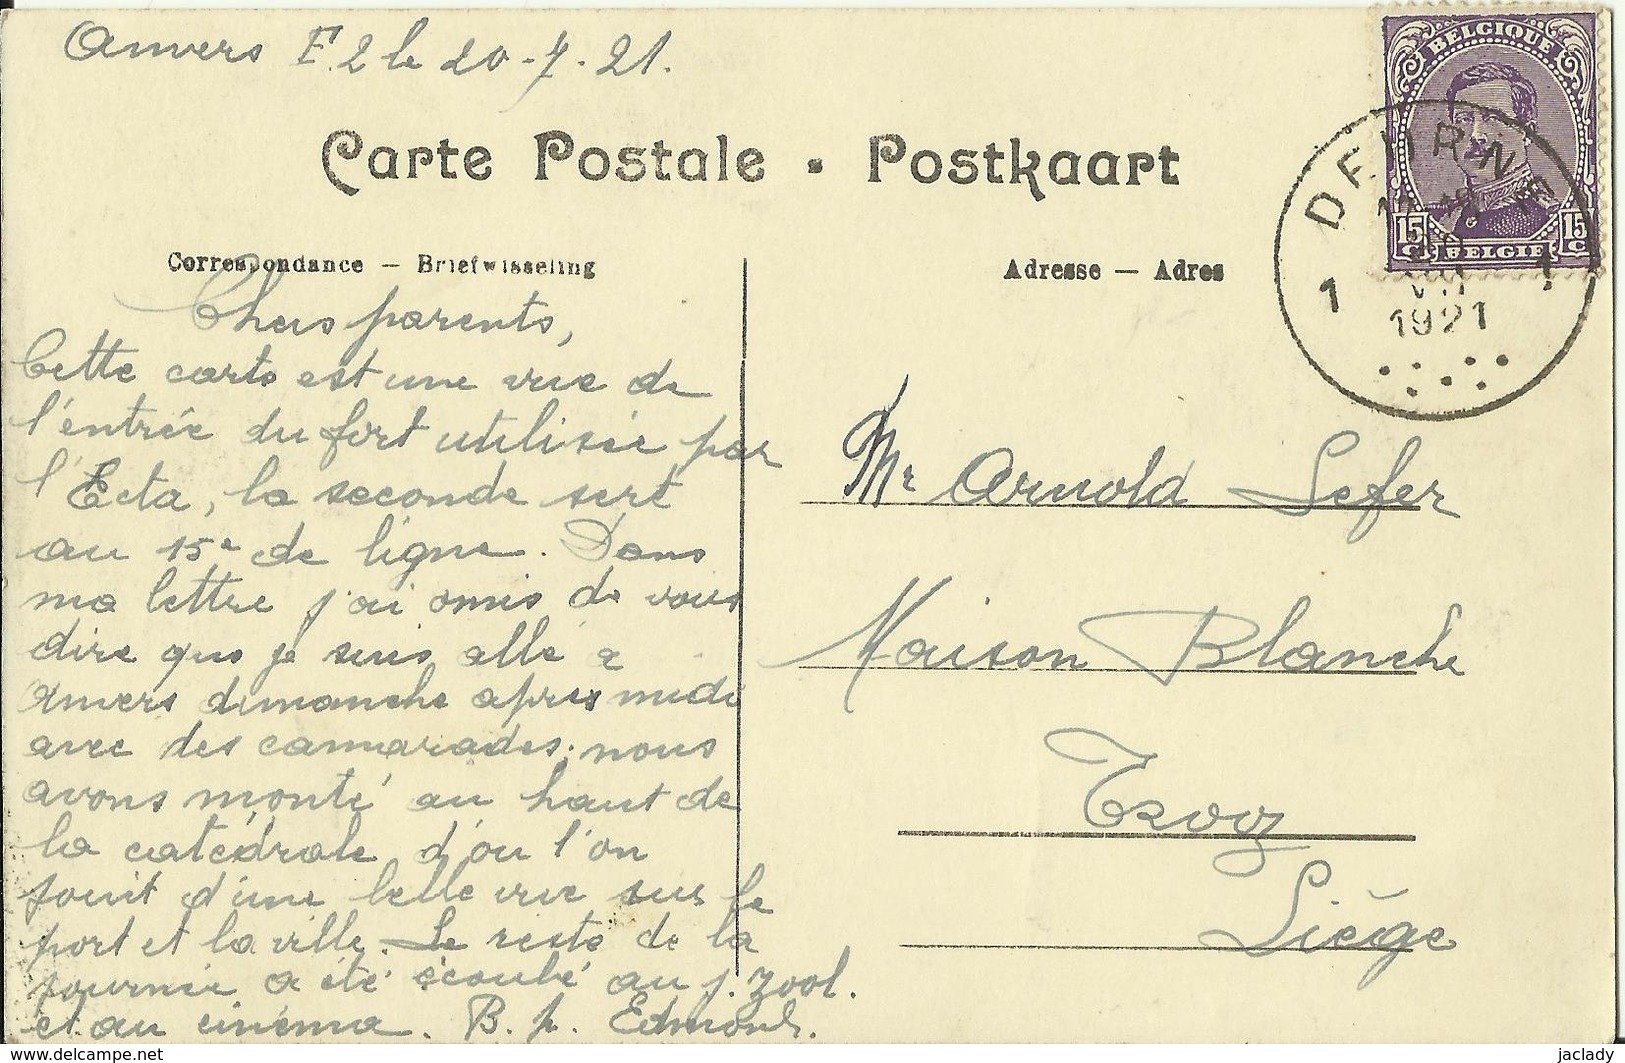 Anvers F.2 le 20-7-21.
BELGIQUE
15 C 15 C
BELGIE
DEURNE
1 1
VII
1921
Carte Postale • Postkaart
Correspondance — Briefwisseling
Adresse — Adres
Chers parents,
Cette carte est une vue de
l'entrée du fort utilisée par
l'Ecta, la seconde sert
au 15e de ligne. Dans
ma lettre j'ai omis de vous
dire que je suis allé a
Anvers dimanche apres midi
avec des cammarades; nous
avons monté au haut de
la catédrale d'ou l'on
jouit d'une belle vue sur le
port et la ville. Le reste de la
journée a été écoulé au j. Zool.
et au cinéma. B. p. Edmond.
Mr Arnold Lefer
Maison Blanche
Trooz
Liège
delcampe.net
jaclady